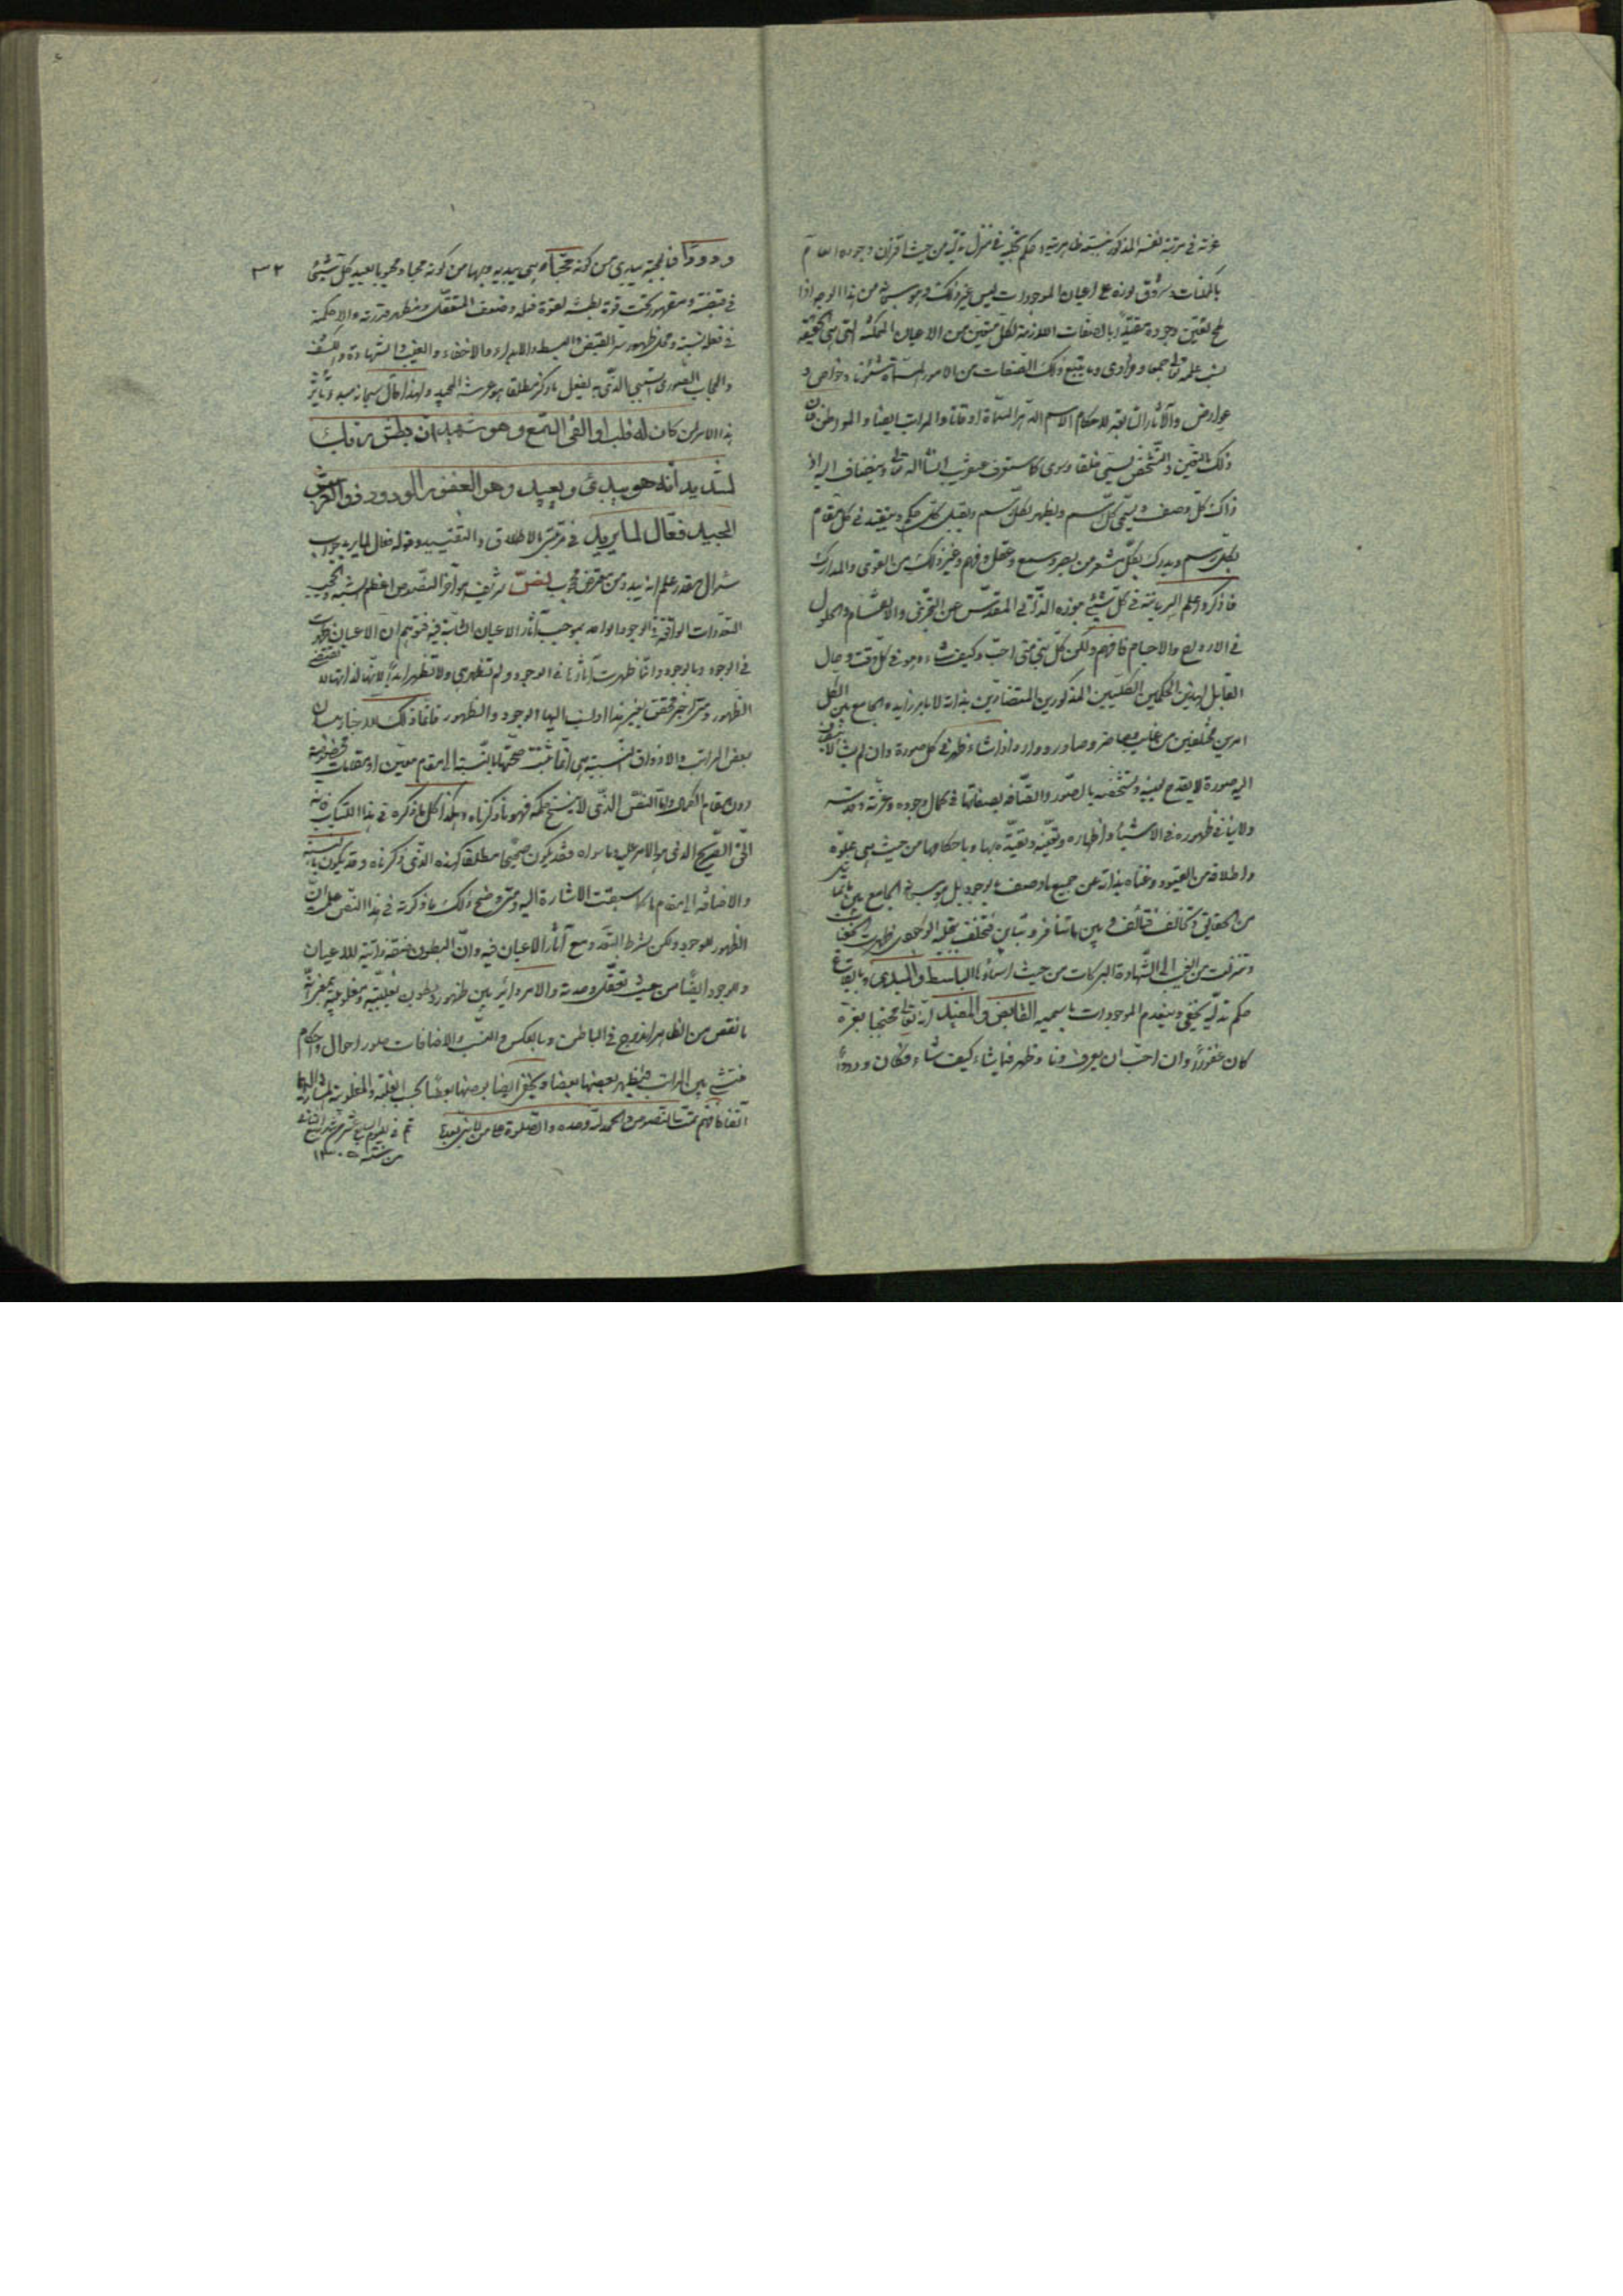 عزته في مرتبة نفسه المذكور بنسبته ظاهريته وحكم تجليه في منزل تدليه من حيث اقتران وجوده العام
بالممكنات وشروق نوره على اعيان الموجودات ليس غير ذلك وهو سبحانه من هذا الوجه اذا
لمح تعين وجوده مقيدا بالصفات اللازمة لكل متعين من الاعيان الممكنة التي هي في الحقيقة
نسب علمه تعالى جمعا وفرادى وما يتبع تلك الصفات من الامور المسماة شئونا وخواص و
عوارض والآثار التابعة لاحكام الاسم الدهر المسماة اوقاتا والمراتب ايضا والمواطن فان
ذلك التعين والتشخص يسمى خلقا وسوى كما ستعرف عن قريب انشاالله تعالى وينضاف اليه اذ
ذاك كل وصف ويسمى بكل اسم ويظهر بكل رسم ويقبل كل حكم ويتقيد في كل مقام
بكل رسم ويدرك بكل مشعر من بصر وسمع وعقل وفهم وغير ذلك من القوى والمدارك
فاذكر واعلم السريانه في كل شيئ بنوره الذاتي المقدس عن التجزي والانقسام والحلول
في الارواح والاجسام فافهم ولكن كل ذلك متى احب وكيف شاء وهو في كل وقت وحال
القابل لهذين الحكمين الكليين المذكورين المتضادين بذاته لا بامر زايد الجامع بين الكل
امرين مختلفين من غايب وحاضر وصادر ووارد اذا شاء ظهر في كل صورة وان لم يشأ لا ينضاف
اليه صورة لا يقدح تعينه وتشخصه بالصور واتصافه بصفاتها في كمال وجوده وعزته وقدسه
ولا ينافي ظهوره في الاشياء واظهاره وتعينه وتقيده بها وباحكامها من حيث هي علوه
واطلاقه من القيود وغناه بذاته عن جميع ما وصف بالوجود بل هو سبحانه الجامع بين ما تماثل
من الحقايق وتخالف فتألف وبين ما تنافر وتباين فتختلف بتجليه الوجودى ظهرت الخفيات
وتنزلت من الغيب الى الشهادة البركات من حيث اسماؤه الباسط والمبدى وبارتفاع
حكم تدليه تخفى وينعدم الموجودات باسميه القابض والمعيد ان تعالى محتجبا بعزه
كان غفورا وان احب ان يعرف دنا وظهر فيما شاء كيف شاء فكان ودودا
٣٢
ودودا فالمحبة يبدى من كونه محبا وهي يبديه وبها من كونه محبا ومحبوبا يعيد كل شيئ
في قبضته ومقهور تحت قوة بطشه لقوة فعله وضعف المنفعل ومظهر قدرته والالحكمة
في فعله نسبته ومحل ظهور سر القبض والبسط والابداء والاخفاء والغيب والشهادة والكشف
والحجاب الصورى النسبي الذى به يفعل ما ذكر مطلقا هو عرشه المجيد ولهذا قال سبحانه
هذا الامر لمن كان له قلب او القى السمع وهو شهيد ان بطش ربك
لشديد انه هو يبدئ ويعيد وهو الغفور الودود ذو العرش
المجيد فعال لما يريد في مرتبتى الاطلاق والتقييد وقوله فعال لما يريد جواب
سؤال مقدر علم انه يبدو من معترض محجوب نص شريف هو آخر النصوص اعظم الشبه والحجب
التعددات الواقعة في الوجود الواحد بموجب آثار الاعيان الثابتة فيه فتوهم ان الاعيان ظهرت
في الوجود وبالوجود وانما ظهرت آثارها في الوجود ولم تظهر هي ولا تظهر ابدا لانها لذاتها لا تقتضى
الظهور ومتى اخبر محقق بغير هذا او نسب اليها الوجود والظهور فانما ذلك الاخبار بلسان
بعض المراتب والاذواق النسبية هي انما تثبت صحتها بالنسبة الى مقام معين او مقامات مخصوصة
دون مقام الكمال واما النص الذى لا ينسخ حكمه فهو ما ذكرناه وهكذا كل ما ذكره في هذا الكتاب فانه
الحق الصريح الذى هو الامر عليه وما سواه فقد يكون صحيحا مطلقا كهذه الذى ذكرناه وقد يكون بالنسبة
والاضافة الى مقام ما كما سبقت الاشارة اليه ومتى وضح لك ما ذكرته في هذا النص علمت ان
الظهور للوجود ولكن بشرط التعدد مع آثار الاعيان فيه وان البطون صفة ذاتية للاعيان
وللوجود ايضا من حيث تعقل وحدته والامر دائر بين ظهور وبطون بغلبة ومغلوبية بمعنى انه
ما نقص من الظاهر اندرج في الباطن وبالعكس والنسب والاضافات صور احوال واحكام
تنشئ بين المراتب فيظهر بعضها بعضا ويخفى ايضا بعضها بعضا بحسب الغلبة والمغلوبية المشار اليها
آنفا فافهم تمت النصوص والحمد لله وحده والصلوة على من لا نبى بعده
تم في يوم السابع عشر من شهر ربيع الثانى
من سنة ١٣٠٥